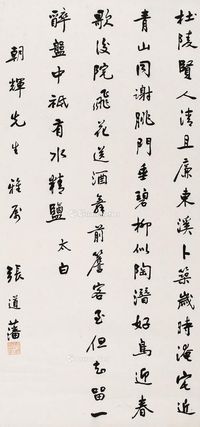 杜陵賢人清且廉東溪卜築歲時淹宅近
青山同謝朓門垂碧柳似陶潛好鳥迎春
歌後院飛花送酒舞前簷客至但知留一
醉盤中祇有水精鹽 太白
朝輝先生雅屬 張道藩